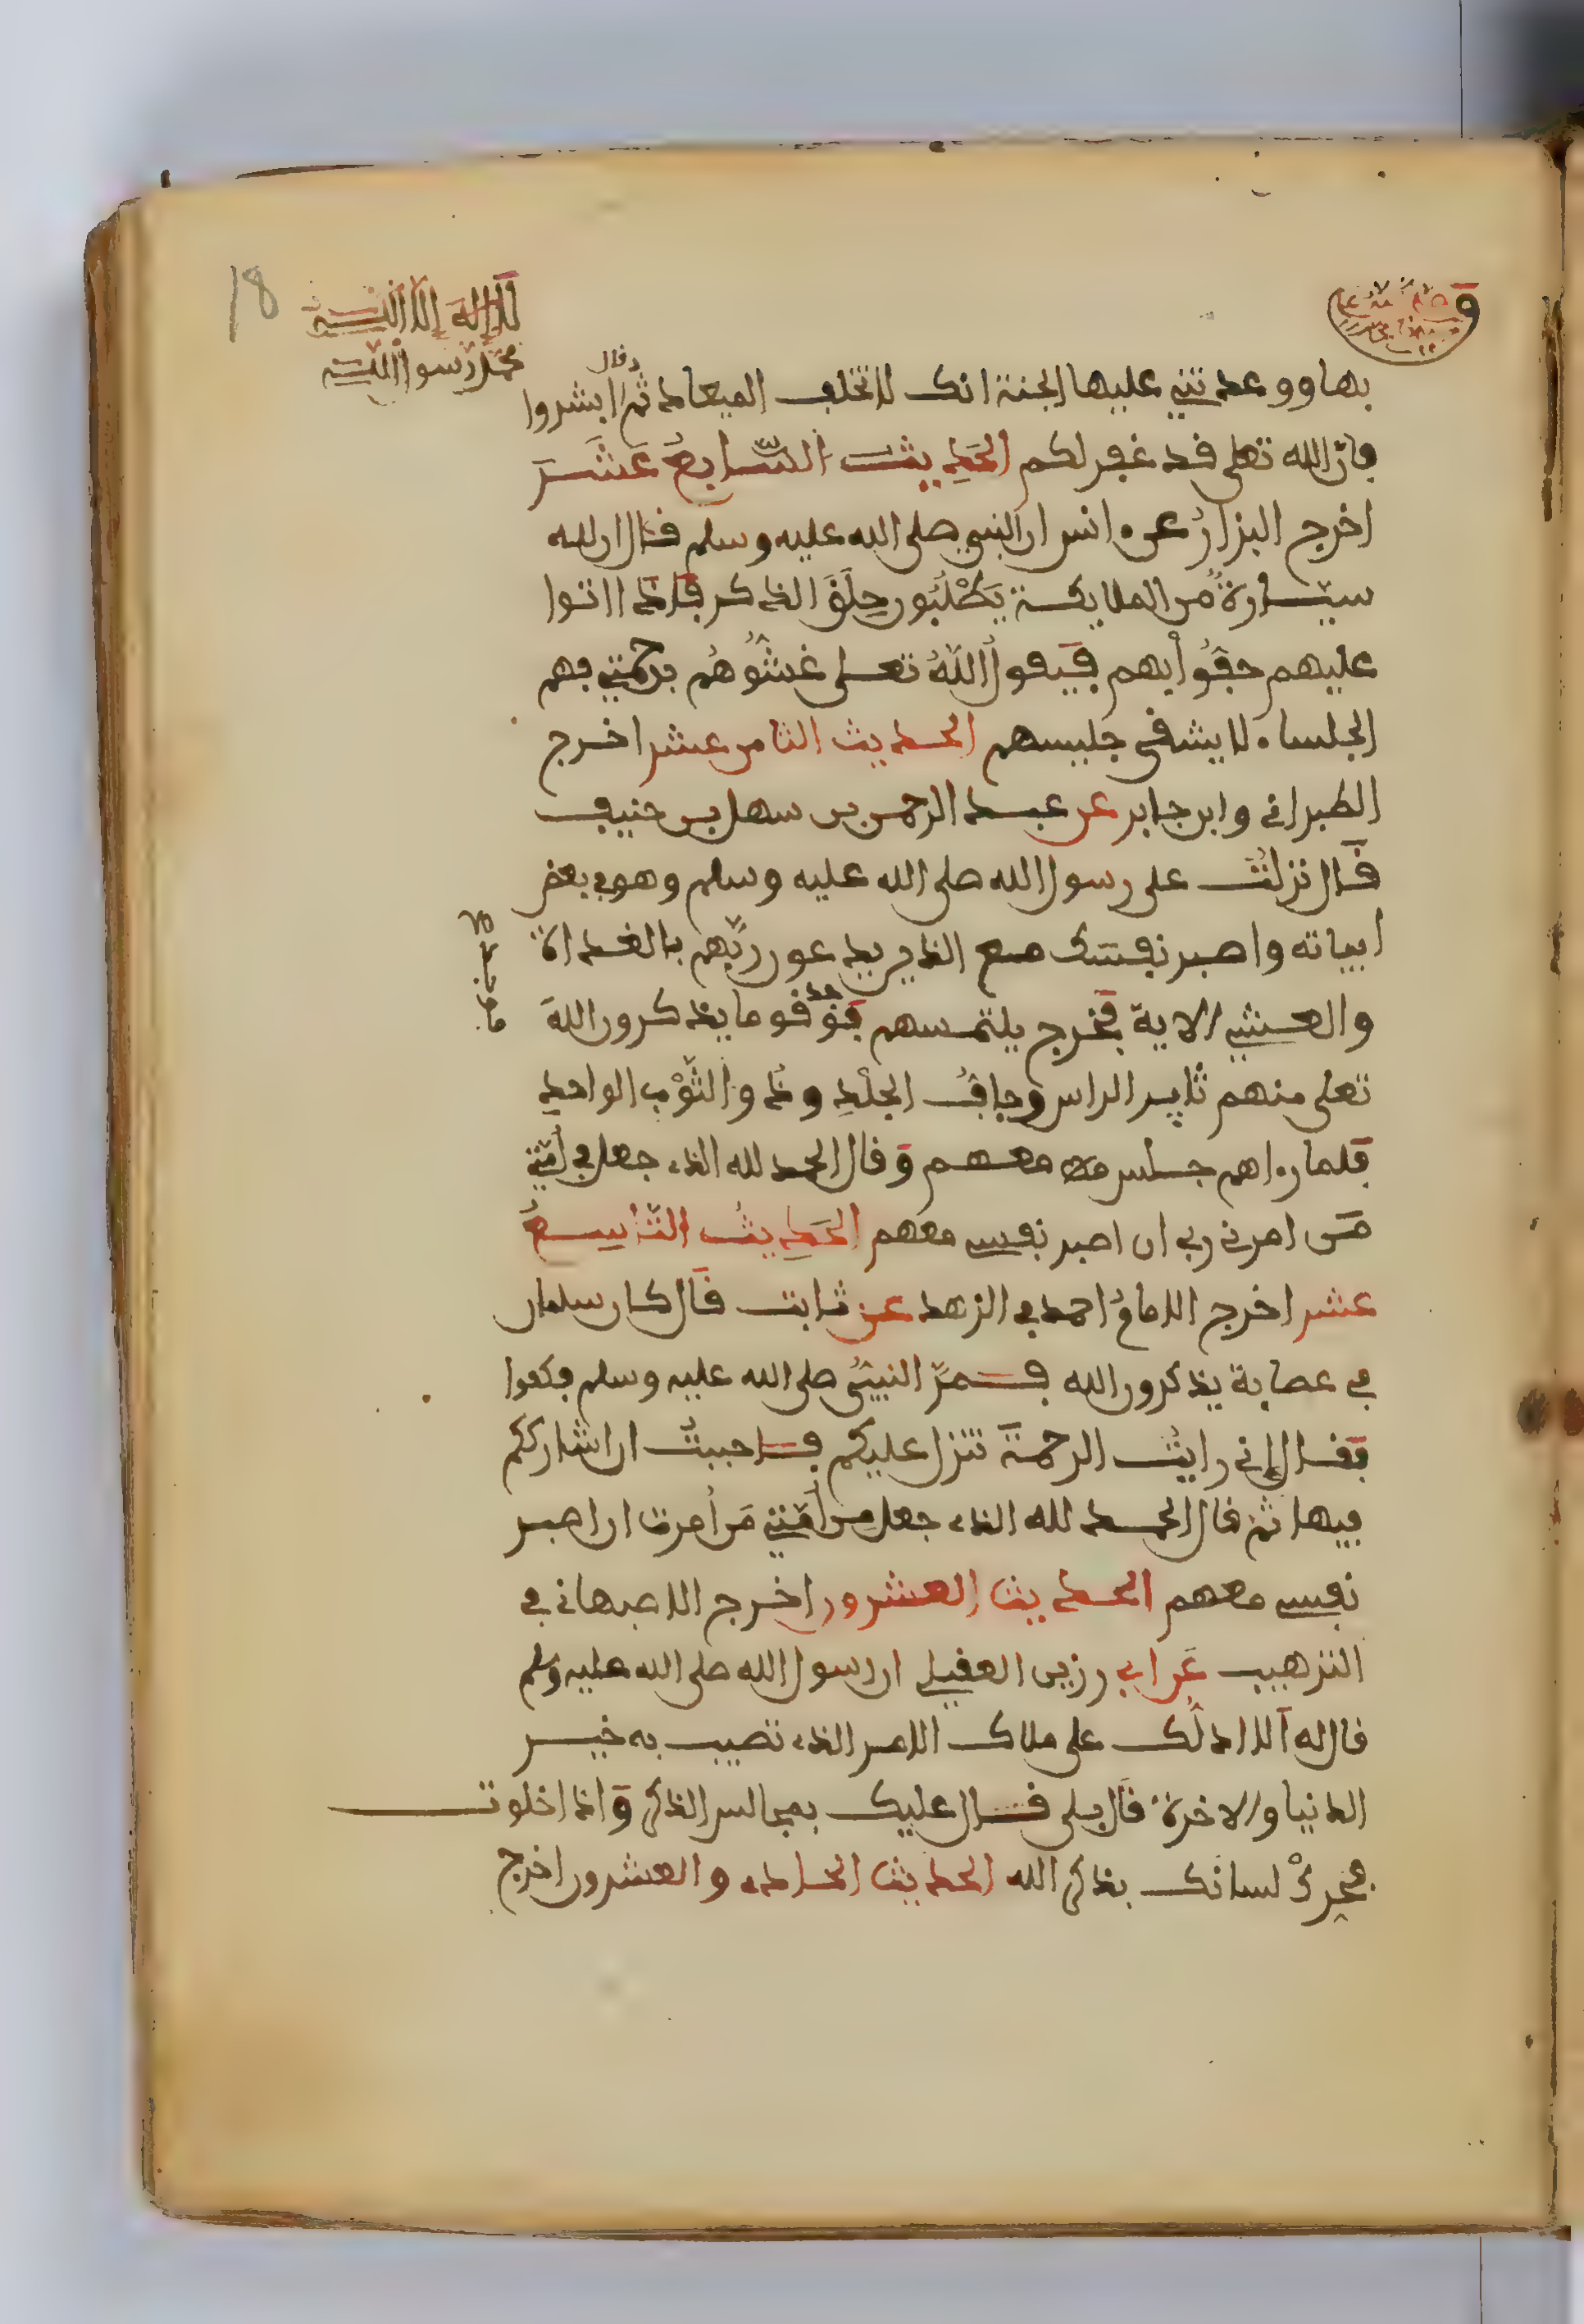 18
لا إله إلا الله
محمد رسول الله
وقال
بها ووعدتني عليها الجنة انك لا تخلف الميعاد ثم ابشروا
فان الله تعلى قد غفر لكم الحَدِيث السّابعُ عَشَرَ
اخرج البزارُ عن انس ان النبي صلى الله عليه وسلم قال ان لله
سيّارةً من الملايكة يَطْلُبُون حِلَقَ الذكر فإذا اتوا
عليهم حفّوا بهم فيقول اللهُ تعلى غشُّوهُم برحمتي فهم
الجلساء لا يشقى جليسهم الحديث الثامن عشر اخرج
الطبراني وابن جابر عن عبد الرحمن بن سهل بن حنيف
قال نزلتْ على رسول الله صلى الله عليه وسلم وهو في بعض
ابياته واصبر نفسك مع الذين يدعون ربّهم بالغداة
والعشي الاية فخرج يلتمسهم فوجد قوما يذكرون اللهَ
تعلى منهم ثاير الراس وجافُ الجلْدِ وذو الثوْب الواحد
فلما رءاهم جلس معهم وقال الحمد لله الذي جعل في أمّتي
مَن امرني ربي ان اصبر نفسي معهم الحَدِيثُ التّاسِعُ
عشر اخرج الامامُ احمد في الزهد عن ثابت قال كان سلمان
في عصابة يذكرون الله فمرّ النبيّ صلى الله عليه وسلم فكفوا
فقال إني رايتُ الرحمةَ تنزل عليكم فاحببتُ ان اشارككم
فيها ثم قال الحمد لله الذي جعل من أمّتي مَن أمرت ان اصبر
نفسي معهم الحديث العشرون اخرج الاصبهاني في
الترهيب عَن ابي رزين العقيلي ان رسول الله صلى الله عليه وسلم
قال له ألا ادلّك على ملاك الامر الذي تصيب به خير
الدنيا والاخرة قال بلى قال عليك بمجالس الذكر وَاذا خلوت
فحرِكْ لسانك بذكر الله الحديث الحادي والعشرون اخرج